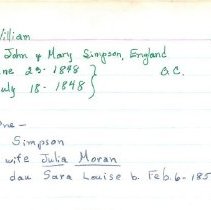 William
John & Mary Simpson, England
ne 23-1848 } O.C.
uly 18-1848
ne-
Simpson
wife Julia Moran
dau Sara Louise b. Feb. 6-185